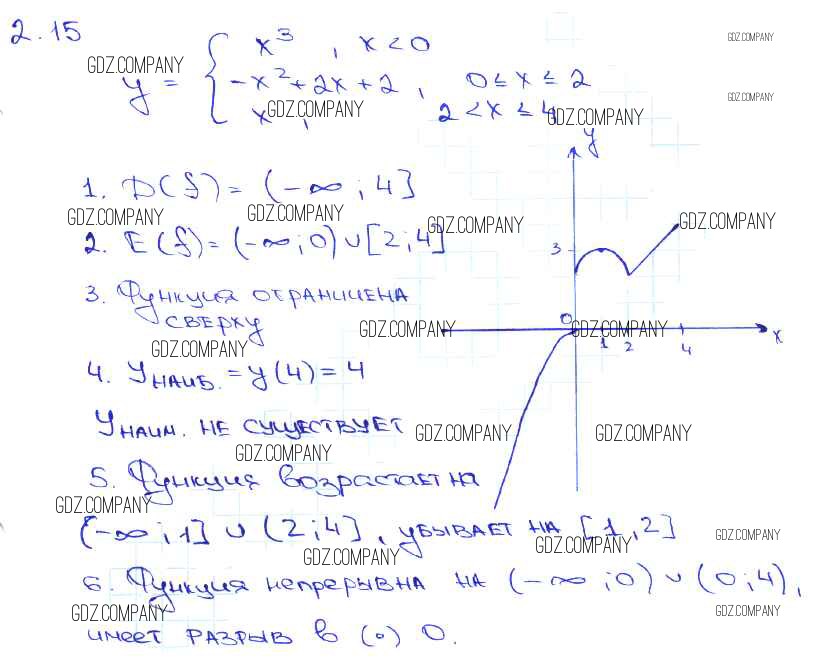 2.15
x³ , x < 0
GDZ.COMPANY
GDZ.COMPANY
y = { -x² + 2x + 2 , 0 ≤ x ≤ 2
GDZ.COMPANY
x , 2 < x ≤ 4
GDZ.COMPANY
GDZ.COMPANY
y
1. D(f) = (-∞ ; 4]
GDZ.COMPANY
GDZ.COMPANY
GDZ.COMPANY
GDZ.COMPANY
2. E(f) = (-∞ ; 0) ∪ [2 ; 4]
3
3. Функция ограничена
сверху
0
GDZ.COMPANY
GDZ.COMPANY
x
1 2 4
GDZ.COMPANY
4. Yнаиб. = y(4) = 4
Yнаим. не существует
GDZ.COMPANY
GDZ.COMPANY
GDZ.COMPANY
5. Функция возрастает на
GDZ.COMPANY
(-∞ ; 1] ∪ (2 ; 4] , убывает на [1 , 2]
GDZ.COMPANY
GDZ.COMPANY
GDZ.COMPANY
6. Функция непрерывна на (-∞ ; 0) ∪ (0 ; 4) ,
GDZ.COMPANY
GDZ.COMPANY
имеет разрыв в (•) 0.